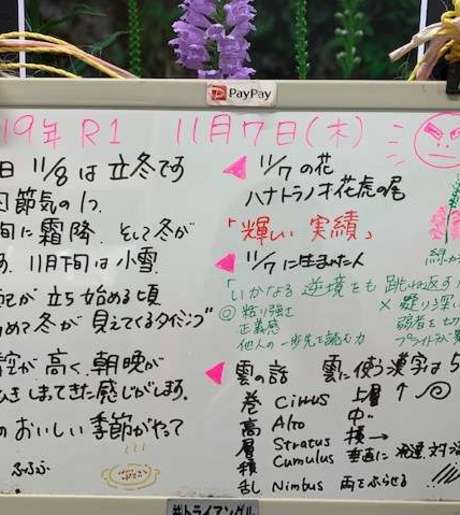 PayPay
19年 R1 11月7日(木)
日 11/8 は 立冬です
節気の1つ.
旬に 霜降. そして 冬が
11月下旬は 小雪.
が 立ち 始める 頃
めて 冬が 見えてくるタイミング
空が 高く、朝晩が
ひきしまってきた 感じがします.
の おいしい 季節がやって
ふふふ
11/7 の 花
ハナトラノオ 花虎の尾
「輝しい 実績」
11/7 に生まれた人
「いかなる 逆境をも 跳ね返す
◎ 粘り強さ
正義感
他人の 一歩先を 読む 力
× 疑り深い
弱者を
プライド
雲の 話 雲に使う 漢字は 5
巻 Cirrus 上層 ↑
高 Alto 中〃
層 Stratus 横 →
積 Cumulus 垂直に 発達. 対流
乱 Nimbus 雨をふらせる
#トライアングル